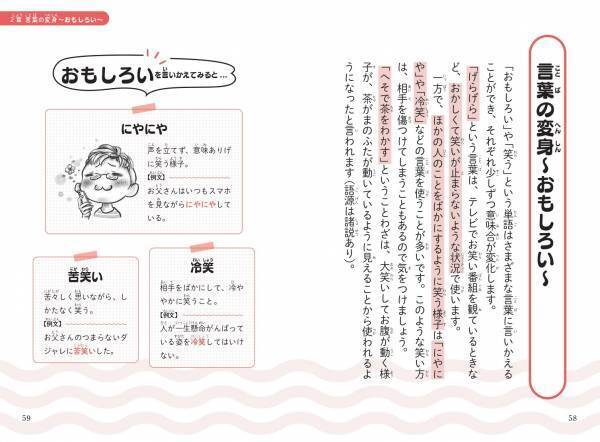 言葉の変身~おもしろい~
「おもしろい」や「笑う」という単語はさまざまな言葉に言いかえる
ことができ、それぞれ少しずつ意味合が変化します。
「げらげら」という言葉は、テレビでお笑い番組を観ているときな
ど、おかしくて笑いが止まらないような状況で使います。
一方で、ほかの人のことをばかにするように笑う様子は「にやに
や」や「冷笑」などの言葉を使うことが多いです。このような笑い方
は、相手を傷つけてしまうこともあるので気をつけましょう。
「へそで茶をわかす」ということわざは、大笑いしてお腹が動く様
子が、茶がまのふたが動いているように見えることから使われるよ
うになったと言われます(語源は諸説あり)。
58
2章 言葉の変身~おもしろい~
おもしろいを言いかえてみると…
にやにや
声を立てず、意味ありげ
に笑う様子。
【例文】
お父さんはいつもスマホ
を見ながらにやにやして
いる。
冷笑
相手をばかにして、冷や
やかに笑うこと。
【例文】
人が一生懸命がんばって
いる姿を冷笑してはいけ
ない。
苦笑い
苦々しく思いながら、し
かたなく笑う。
【例文】
お父さんのつまらないダ
ジャレに苦笑いした。
59